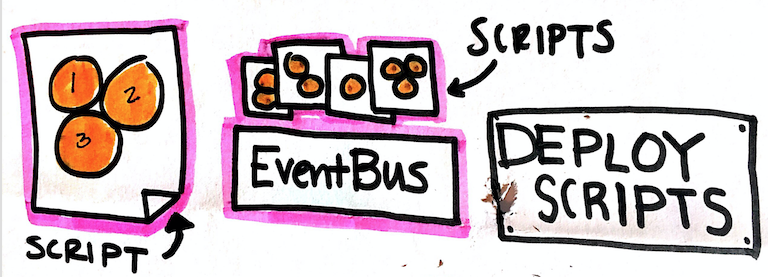 1
2
3
SCRIPT
SCRIPTS
EventBus
DEPLOY
SCRIPTS